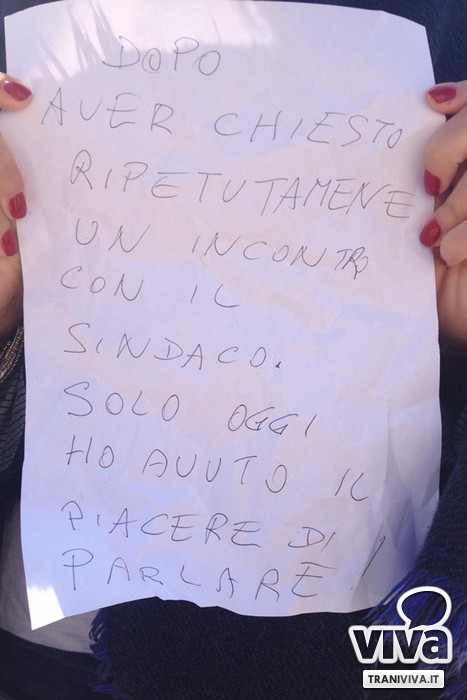 DOPO
AVER CHIESTO
RIPETUTAMENE
UN INCONTRO
CON IL
SINDACO.
SOLO OGGI
HO AVUTO IL
PIACERE DI
PARLARE!
viva
TRANIVIVA.IT